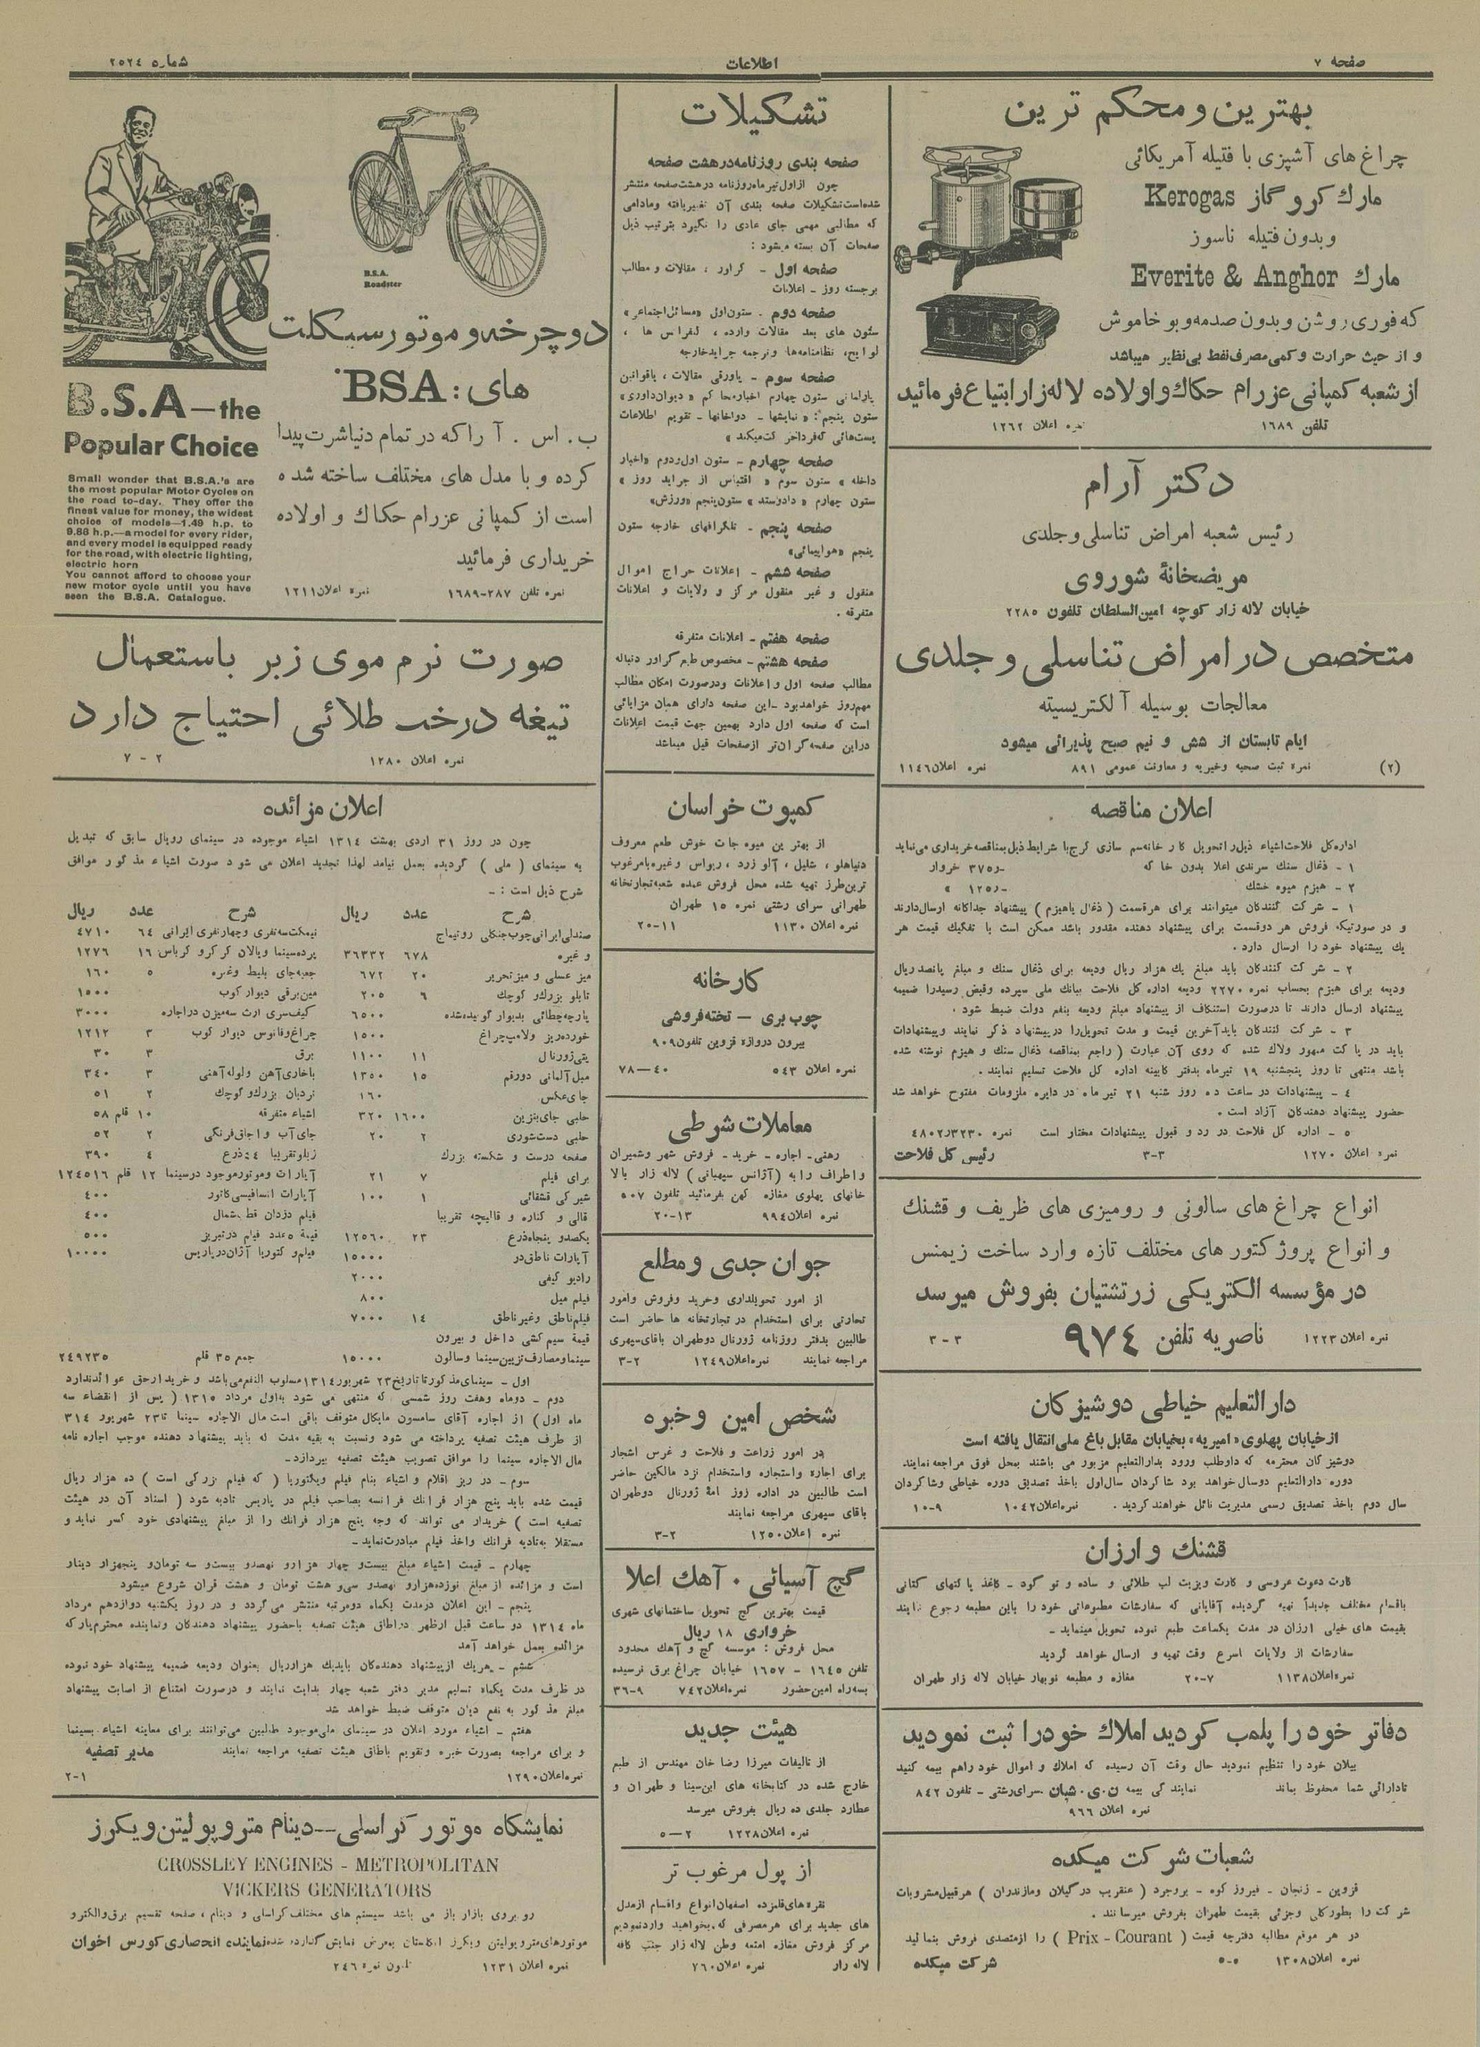 صفحه ۷
اطلاعات
شماره ۲۵۲۴
بهترین و محکم ترین
چراغ های آشپزی با فتیله آمریکائی
مارك کروگاز Kerogas
و بدون فتیله ناسوز
مارك Everite & Anghor
که فوری روشن و بدون صدمه و بو خاموش
و از حیث حرارت و کمی مصرف نفط بی نظیر میباشد
از شعبه کمپانی عزرام حکاك و اولاده لاله زار ابتیاع فرمائید
تلفن ۱٦۸۹ نمره اعلان ۱۲٦۲
دکتر آرام
رئیس شعبه امراض تناسلی و جلدی
مریضخانهٔ شوروی
خیابان لاله زار کوچه امین السلطان تلفون ۲۲۸۵
متخصص در امراض تناسلی و جلدی
معالجات بوسیله آلکتریسیته
ایام تابستان از شش و نیم صبح پذیرائی میشود
(۲) نمره ثبت صحیه و خیریه و معاونت عمومی ۸۹۱ نمره اعلان ۱۱٤٦
اعلان مناقصه
اداره کل فلاحت اشیاء ذیل را تحویل کارخانه سم سازی کرج با شرایط ذیل بمناقصه خریداری می نماید
۱ - ذغال سنك سرندی اعلا بدون خاکه ۳۷۵ خروار
۲ - هیزم میوه خشك ۱۲۵ »
۱ - شرکت کنندگان میتوانند برای هر قسمت ( ذغال یا هیزم ) پیشنهاد جداگانه ارسال دارند
و در صورتیکه فروش هر دو قسمت برای پیشنهاد دهنده مقدور باشد ممکن است با تفکیك قیمت هر
یك پیشنهاد خود را ارسال دارد .
۲ - شرکت کنندگان باید مبلغ یك هزار ریال ودیعه برای ذغال سنك و مبلغ پانصد ریال
ودیعه برای هیزم بحساب نمره ۲۲۷۰ ودیعه اداره کل فلاحت ببانك ملی سپرده و قبض رسید را ضمیمه
پیشنهاد ارسال دارند تا در صورت استنکاف از پیشنهاد مبلغ ودیعه بنفع دولت ضبط شود .
۳ - شرکت کنندگان باید آخرین قیمت و مدت تحویل را در پیشنهاد ذکر نمایند و پیشنهادات
باید در پاکت ممهور ولاك شده که روی آن عبارت ( راجع بمناقصه ذغال سنك و هیزم نوشته شده
باشد منتهی تا روز پنجشنبه ۱۹ تیرماه بدفتر کابینه اداره کل فلاحت تسلیم نمایند .
٤ - پیشنهادات در ساعت ده روز شنبه ۲۱ تیر ماه در دایره ملزومات مفتوح خواهد شد
حضور پیشنهاد دهندگان آزاد است .
۵ - اداره کل فلاحت در رد و قبول پیشنهادات مختار است نمره ٤۸۰۲/۳۲۳۰
نمره اعلان ۱۲۷۰ ۳-۳ رئیس کل فلاحت
انواع چراغ های سالونی و رومیزی های ظریف و قشنك
و انواع پروژکتور های مختلف تازه وارد ساخت زیمنس
در مؤسسه الکتریکی زرتشتیان بفروش میرسد
نمره اعلان ۱۲۲۳ ناصریه تلفن ۹۷٤ ۳ - ۳
دارالتعلیم خیاطی دوشیزگان
از خیابان پهلوی «امیریه» بخیابان مقابل باغ ملی انتقال یافته است
دوشیزگان محترمه که داوطلب ورود بدارالتعلیم مزبور می باشند بمحل فوق مراجعه نمایند
دوره دارالتعلیم دوسال خواهد بود شاگردان سال اول باخذ تصدیق دوره خیاطی و شاگردان
سال دوم باخذ تصدیق رسمی مدیریت نائل خواهند گردید . نمره اعلان ۱۰٤۲ ۹-۱۰
قشنك و ارزان
کارت دعوت عروسی و کارت ویزیت لب طلائی و ساده و تو گود - کاغذ پاکتهای کتانی
باقسام مختلف جدیداً تهیه گردیده آقایانی که سفارشات مطبوعاتی خود را باین مطبعه رجوع نمایند
بقیمت های خیلی ارزان در مدت یکساعت طبع نموده تحویل مینماید -
سفارشات از ولایات اسرع وقت تهیه و ارسال خواهد گردید
نمره اعلان ۱۱۳۸ ۷-۲۰ مغازه و مطبعه نوبهار خیابان لاله زار طهران
دفاتر خود را پلمب کردید املاك خود را ثبت نمودید
بیلان خود را تنظیم نمودید حال وقت آن رسیده که املاك و اموال خود را هم بیمه کنید
تا دارائی شما محفوظ بماند نمایندگی بیمه ن . ی . شبان سرای رشتی - تلفون ۸٤۲
نمره اعلان ۹٦٦
شعبات شرکت میکده
قزوین - زنجان - فیروز کوه - بروجرد ( عنقریب در گیلان و مازندران ) هر قبیل مشروبات
شرکت را بطور کلی و جزئی بقیمت طهران بفروش میرسانند .
در هر موقع مطالبه دفترچه قیمت ( Prix - Courant ) را از متصدی فروش بنمائید
نمره اعلان ۱۳۰۸ ۵-۵ شرکت میکده
تشکیلات
صفحه بندی روزنامه در هشت صفحه
چون از اول تیر ماه روزنامه در هشت صفحه منتشر
شده است تشکیلات صفحه بندی آن تغییر یافته و مادامی
که مطالبی مهمی جای عادی را نگیرد بترتیب ذیل
صفحات آن بسته میشود :
صفحه اول - گراور ، مقالات و مطالب
برجسته روز - اعلانات
صفحه دوم - ستون اول «مسائل اجتماعی»
ستون های بعد مقالات وارده ، کنفرانس ها ،
لوایح، نظامنامه ها و ترجمه جراید خارجه
صفحه سوم - پاورقی مقالات ، یا قوانین
پارلمانی ستون چهارم اخبار محاکم «دیوان داوری»
ستون پنجم: «نمایشها - دواخانها - تقویم اطلاعات
پست هائی که فردا حرکت میکند»
صفحه چهارم - ستون اول و دوم «اخبار
داخله» ستون سوم « اقتباس از جراید روز »
ستون چهارم «دادوستد» ستون پنجم «ورزش»
صفحه پنجم - تلگرافهای خارجه ستون
پنجم «هواپیمائی»
صفحه ششم - اعلانات حراج اموال
منقول و غیر منقول مرکز و ولایات و اعلانات
متفرقه .
صفحه هفتم - اعلانات متفرقه
صفحه هشتم - مخصوص طبع گراور دنباله
مطالب صفحه اول و اعلانات و در صورت امکان مطالب
مهم روز خواهد بود - این صفحه دارای همان مزایائی
است که صفحه اول دارد بهمین جهت قیمت اعلانات
در این صفحه گران تر از صفحات قبل میباشد
کمپوت خراسان
از بهترین میوه جات خوش طعم معروف
دنیا هلو ، شلیل ، آلو زرد ، ریواس و غیره با مرغوب
ترین طرز تهیه شده محل فروش عمده شعبه تجارتخانه
طهرانی سرای رشتی نمره ۱۵ طهران
نمره اعلان ۱۱۳۰ ۱۱-۲۰
کارخانه
چوب بری - تخته فروشی
بیرون دروازه قزوین تلفون ۹۰۹
نمره اعلان ۵٤۳ ٤۰-۷۸
معاملات شرطی
رهنی - اجاره - خرید - فروش شهر و شمیران
و اطراف را به (آژانس سپهبانی) لاله زار بالا
خانهای پهلوی مغازه کهن بفرمائید تلفون ۵۰۷
نمره اعلان ۹۹٤ ۱۳-۲۰
جوان جدی و مطلع
از امور تحویلداری و خرید و فروش و امور
تجارتی برای استخدام در تجارتخانه ها حاضر است
طالبین بدفتر روزنامه ژورنال دو طهران باقای سپهری
مراجعه نمایند نمره اعلان ۱۲٤۹ ۲-۳
شخص امین و خبره
در امور زراعت و فلاحت و غرس اشجار
برای اجاره و استجاره و استخدام نزد مالکین حاضر
است طالبین در اداره روزنامهٔ ژورنال دوطهران
باقای سپهری مراجعه نمایند
نمره اعلان ۱۲۵۰ ۲-۳
گچ آسیائی . آهك اعلا
قیمت بهترین گچ تحویل ساختمانهای شهری
خرواری ۱۸ ریال
محل فروش : موسسه گچ و آهك محدود
تلفن ۱٦٤۵ - ۱٦۵۷ خیابان چراغ برق نرسیده
بسه راه امین حضور نمره اعلان ۷٤۲ ۹-۳٦
هیئت جدید
از تالیفات میرزا رضا خان مهندس از طبع
خارج شده در کتابخانه های ابن سینا و طهران و
عطارد جلدی ده ریال بفروش میرسد
نمره اعلان ۱۲۲۸ ۲-۵
از پول مرغوب تر
نقره های قلمزده اصفهان انواع و اقسام از مدل
های جدید برای هر مصرفی که بخواهید وارد نمودیم
مرکز فروش مغازه امتعه وطن لاله زار جنب کافه
لاله زار نمره اعلان ۷٦۰
B.S.A. Roadster
دوچرخه و موتور سیکلت
های : BSA.
ب . اس . آ را که در تمام دنیا شهرت پیدا
کرده و با مدل های مختلف ساخته شده
است از کمپانی عزرام حکاك و اولاده
خریداری فرمائید
نمره تلفن ۲۸۷-۱٦۸۹ نمره اعلان ۱۲۱۱
B.S.A — the
Popular Choice
Small wonder that B.S.A.'s are
the most popular Motor Cycles on
the road to-day. They offer the
finest value for money, the widest
choice of models—1.49 h.p. to
9.86 h.p.—a model for every rider,
and every model is equipped ready
for the road, with electric lighting,
electric horn
You cannot afford to choose your
new motor cycle until you have
seen the B.S.A. Catalogue.
صورت نرم موی زبر باستعمال
تیغه درخت طلائی احتیاج دارد
نمره اعلان ۱۲۸۰ ۲ - ۷
اعلان مزائده
چون در روز ۳۱ اردی بهشت ۱۳۱٤ اشیاء موجوده در سینمای رویال سابق که تبدیل
به سینمای ( ملی ) گردیده بعمل نیامد لهذا تجدید اعلان می شود صورت اشیاء مذکور موافق
شرح ذیل است : -
شرح عدد ریال شرح عدد ریال
صندلی ایرانی چوب جنگلی رو تیماج
و غیره ٦۷۸ ۳٦۳۳۲
میز عسلی و میز تحریر ۲۰ ٦۷۲
تابلو بزرك و کوچك ٦ ۲۰۵
پارچه چطائی بدیوار کوبیده شده ٦۵۰۰
خورده ریز و لامپ چراغ ۱۵۰۰
۱۱ ۱۱۰۰
مبل آلمانی دورقم ۱۵ ۱۳۵۰
جای عکس ۱٦۰
حلبی جای بنزین ۱٦۰۰ ۳۲۰
حلبی دست شوری ۲ ۲۰
صفحه درست و شکسته بزرك
برای فیلم ۷ ۲۱
شیرکی قشقائی ۱ ۱۰۰
قالی و کناره و قالیچه تقریبا
یکصدو پنجاه ذرع ۲۳ ۱۲۵٦۰
آپارات ناطق در ۱۵۰۰۰
رادیو کیفی ۲۰۰۰
فیلم میل ۸۰۰
فیلم ناطق و غیر ناطق ۱٤ ۷۰۰۰
قیمة سیم کشی داخل و بیرون
سینما و مصارف تزیین سینما و سالون ۱۵۰۰۰
نیمکت سه نفری و چهار نفری ایرانی ٦٤ ٤۷۱۰
پرده سینما و پالان کرکرو کرباس ۱٦ ۱۲۷٦
جعبه جای بلیط و غیره ۵ ۱٦۰
دیوار کوب ۱۵۰۰
۳۰۰۰
چراغ و فانوس دیوار کوب ۳ ۱۲۱۲
برق ۳ ۳۰
بخاری آهن و لوله آهنی ۳ ۳٤۰
نردبان بزرك و کوچك ۲ ۵۱
اشیاء متفرقه ۱۰ قلم ۵۸
جای آب و اجاق فرنگی ۲ ۵۲
زیلو تقریبا ٤ ۳۹۰
آپارات و موتور موجود در سینما ۱۲ قلم ۱۲٤۵۱٦
آپارات ٤۰۰
فیلم دزدان قطب شمال ٤۰۰
قیمة ۵ عدد فیلم در تبریز ۵۰۰
فیلم و کتوریا آژان در پاریس ۱۰۰۰۰
جمع ۳۵ قلم ۲٤۹۲۳۵
اول - سینمای مذکور تا تاریخ ۲۳ شهریور ۱۳۱٤ مسلوب النفع می باشد و خریدار حق عوائد ندارد
دوم - دوماه و هفت روز شمسی که منتهی می شود به اول مرداد ۱۳۱۵ ( پس از انقضاء سه
ماه اول ) از اجاره آقای سامسون مایکال متوقف باقی است مال الاجاره سینما تا ۲۳ شهریور ۳۱٤
از طرف هیئت تصفیه پرداخته می شود و نسبت به بقیه مدت که باید پیشنهاد دهنده موجب اجاره نامه
مال الاجاره سینما را موافق تصویب هیئت تصفیه بپردازد -
سوم - در ریز اقلام و اشیاء بنام فیلم ویکتوریا ( که فیلم بزرگی است ) ده هزار ریال
قیمت شده باید پنج هزار فرانك فرانسه بصاحب فیلم در پاریس تادیه شود ( اسناد آن در هیئت
تصفیه است ) خریدار می تواند که وجه پنج هزار فرانك را از مبلغ پیشنهادی خود کسر نماید و
مستقلا به تادیه فرانك و اخذ فیلم مبادرت نماید -
چهارم - قیمت اشیاء مبلغ بیست و چهار هزار و نهصدو بیست و سه تومان و پنجهزار دینار
است و مزائده از مبلغ نوزده هزارو نهصدو سی و هشت تومان و هشت قران شروع میشود
پنجم - این اعلان در مدت یکماه دو مرتبه منتشر می گردد و در روز یکشنبه دوازدهم مرداد
ماه ۱۳۱٤ دو ساعت قبل از ظهر در اطاق هیئت تصفیه با حضور پیشنهاد دهندگان و نماینده محترم پارکه
مزائده بعمل خواهد آمد
ششم - هریك از پیشنهاد دهندگان باید یك هزار ریال بعنوان ودیعه ضمیمه پیشنهاد خود نموده
در ظرف مدت یکماه تسلیم مدیر دفتر شعبه چهار بدایت نمایند و در صورت امتناع از اصابت پیشنهاد
مبلغ مذکور به نفع دیان متوقف ضبط خواهد شد
هفتم - اشیاء مورد اعلان در سینمای ملی موجود طالبین می توانند برای معاینه اشیاء بسینما
و برای مراجعه بصورت خبره و تقویم باطاق هیئت تصفیه مراجعه نمایند مدیر تصفیه
نمره اعلان ۱۲۹۰ ۱-۲
نمایشگاه موتور کراسلی -- دینام متروپولیتن ویکرز
CROSSLEY ENGINES - METROPOLITAN
VICKERS GENERATORS
رو بروی بازار باز می باشد سیستم های مختلف کراسلی و دینام ، صفحه تقسیم برق و الکترو
موتورهای متروپولیتن ویکرز انگلستان بمعرض نمایش گذارده شده نماینده انحصاری کورس اخوان
نمره اعلان ۱۲۳۱ تلفون نمره ۲٤٦